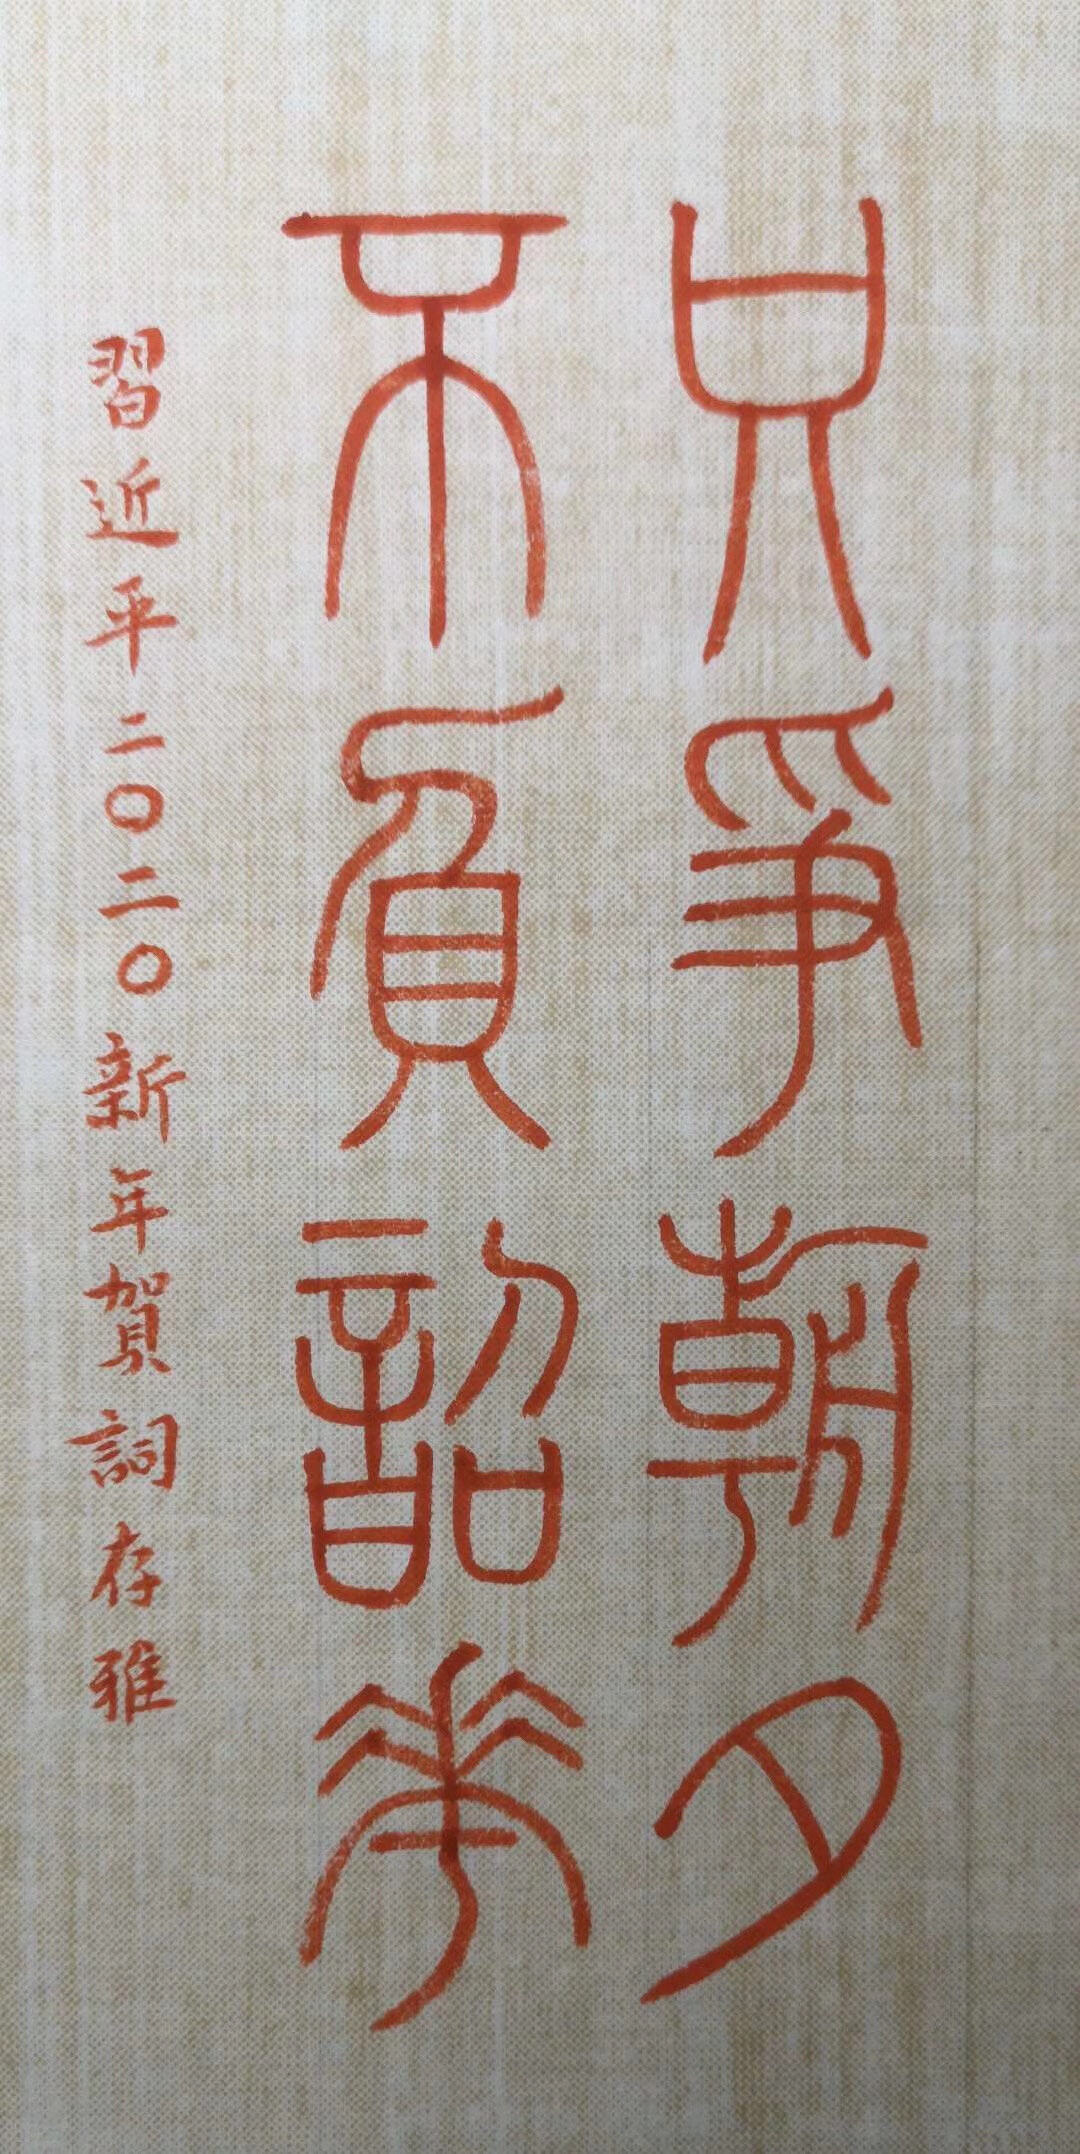 只爭朝夕
不負韶華
習近平二〇二〇新年賀詞存雅